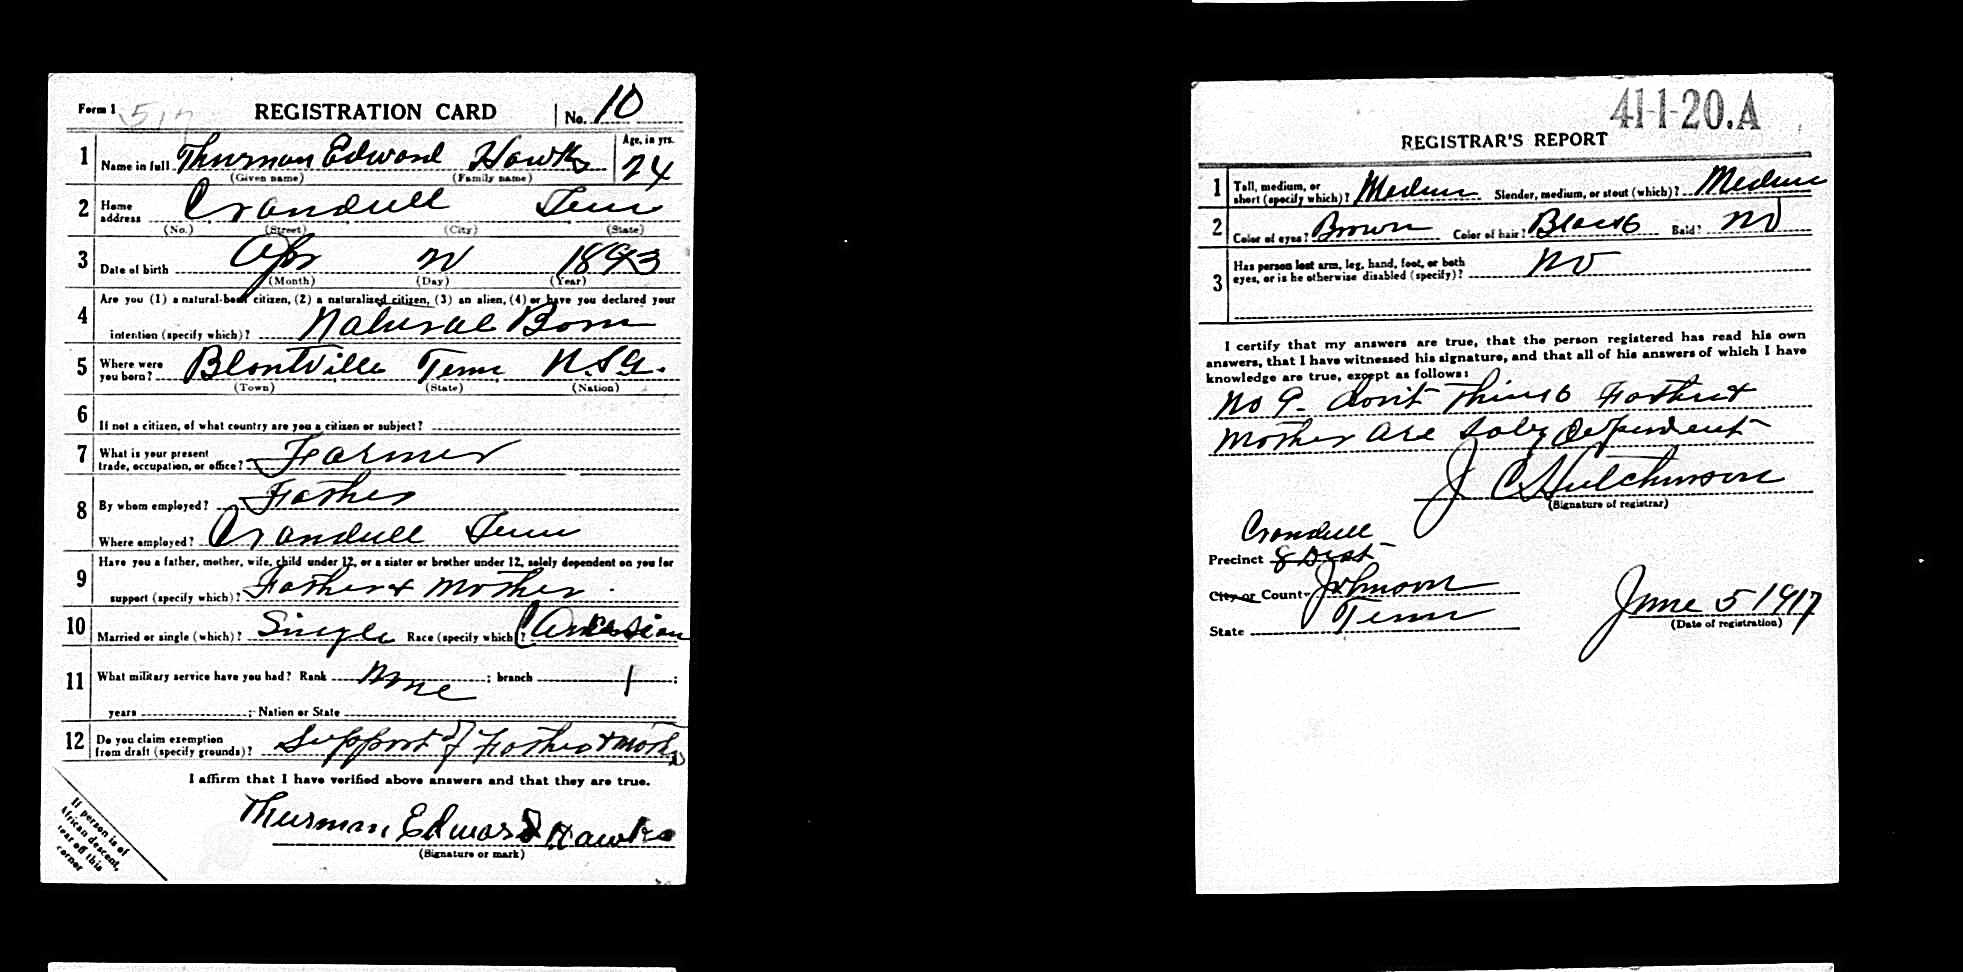 Form 1 517 REGISTRATION CARD No. 10
1 Name in full Thurman Edward Hawks Age, in yrs. 24
(Given name) (Family name)
2 Home address Crandull Tenn
(No.) (Street) (City) (State)
3 Date of birth Apr 1893
(Month) (Day) (Year)
4 Are you (1) a natural-born citizen, (2) a naturalized citizen, (3) an alien, (4) or have you declared your
intention (specify which)? Natural Born
5 Where were you born? Blontville Tenn U.S.A.
(Town) (State) (Nation)
6 If not a citizen, of what country are you a citizen or subject?
7 What is your present trade, occupation, or office? Farmer
8 By whom employed? Father
Where employed? Crandull Tenn
9 Have you a father, mother, wife, child under 12, or a sister or brother under 12, solely dependent on you for
support (specify which)? Father & Mother
10 Married or single (which)? Single Race (specify which)? Caucasian
11 What military service have you had? Rank None ; branch ;
years ; Nation or State
12 Do you claim exemption from draft (specify grounds)? Support of Father & Mother
I affirm that I have verified above answers and that they are true.
Thurman Edward Hawks
(Signature or mark)
If person is of
African descent,
tear off this
corner
41-1-20.A
REGISTRAR'S REPORT
1 Tall, medium, or short (specify which)? Medium Slender, medium, or stout (which)? Medium
2 Color of eyes? Brown Color of hair? Black Bald? No
3 Has person lost arm, leg, hand, foot, or both
eyes, or is he otherwise disabled (specify)? No
I certify that my answers are true, that the person registered has read his own
answers, that I have witnessed his signature, and that all of his answers of which I have
knowledge are true, except as follows:
No 9. don't think Father &
Mother are soley dependent
J C Hutchinson
(Signature of registrar)
Crandull
Precinct 8 Dist
City or County Johnson
State Tenn
June 5 1917
(Date of registration)